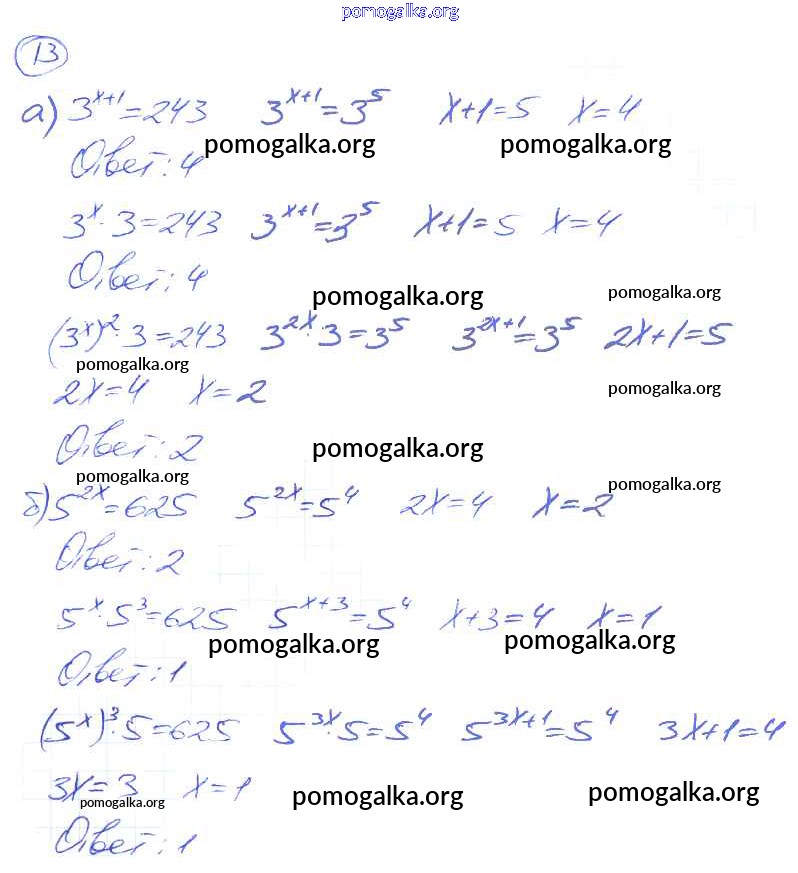 pomogalka.org
13
а) 3^{x+1}=243 3^{x+1}=3^5 x+1=5 x=4
pomogalka.org pomogalka.org
Ответ: 4
3^x·3=243 3^{x+1}=3^5 x+1=5 x=4
Ответ: 4
pomogalka.org pomogalka.org
(3^x)^2·3=243 3^{2x}·3=3^5 3^{2x+1}=3^5 2x+1=5
pomogalka.org
2x=4 x=2 pomogalka.org
Ответ: 2 pomogalka.org
pomogalka.org pomogalka.org
б) 5^{2x}=625 5^{2x}=5^4 2x=4 x=2
Ответ: 2
5^x·5^3=625 5^{x+3}=5^4 x+3=4 x=1
pomogalka.org pomogalka.org
Ответ: 1
(5^x)^3·5=625 5^{3x}·5=5^4 5^{3x+1}=5^4 3x+1=4
3x=3 x=1
pomogalka.org pomogalka.org pomogalka.org
Ответ: 1